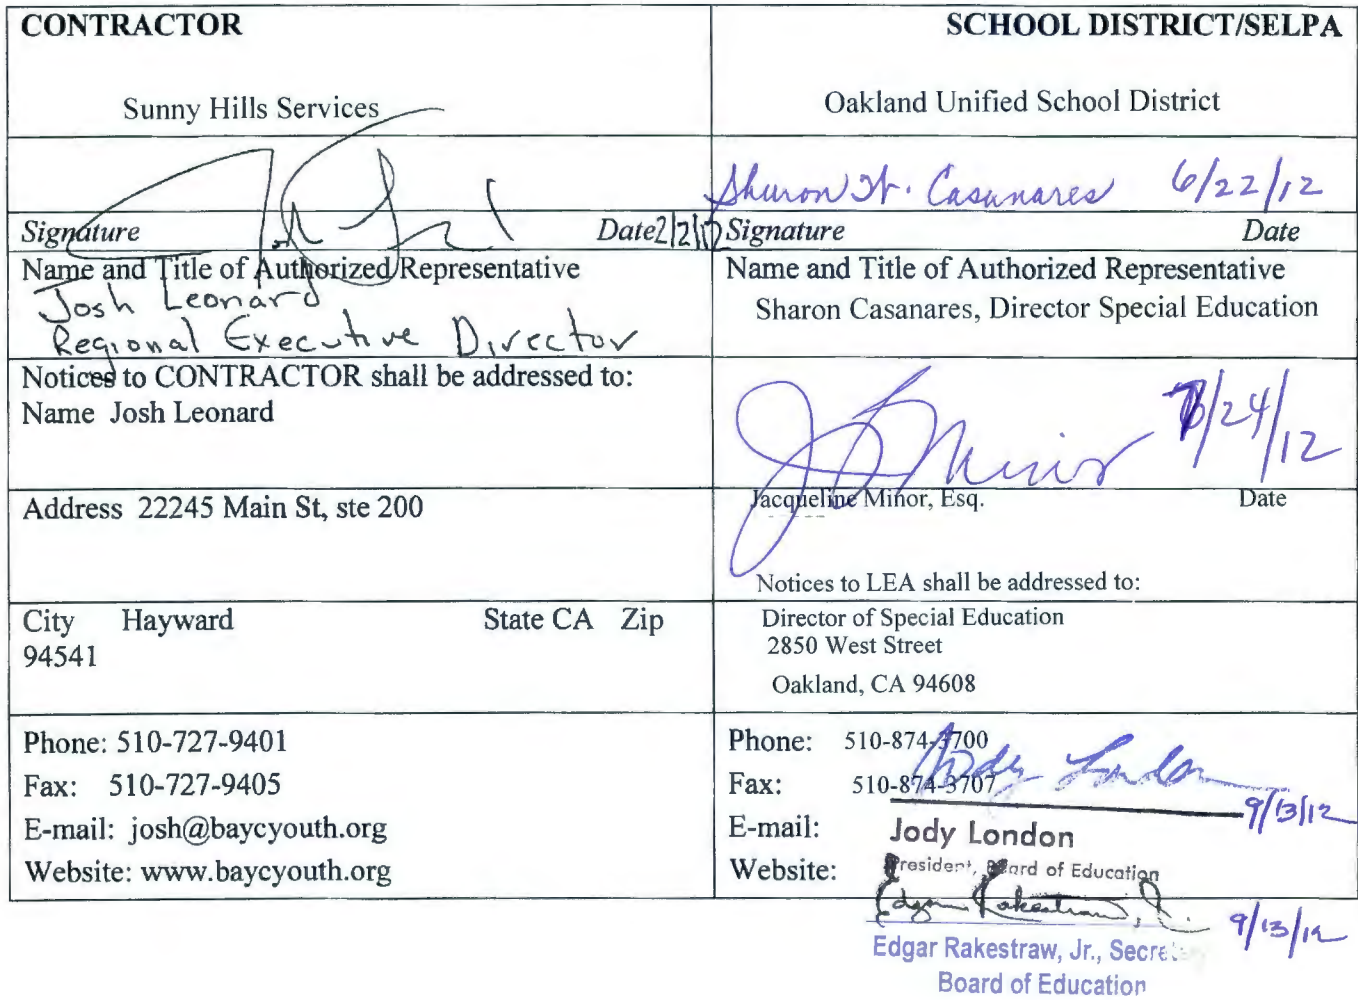 CONTRACTOR
Sunny Hills Services
Signature Date
Name and Title of Authorized Representative
Josh Leonard
Regional Executive Director
Notices to CONTRACTOR shall be addressed to:
Name Josh Leonard
Address 22245 Main St, ste 200
City Hayward State CA Zip
94541
Phone: 510-727-9401
Fax: 510-727-9405
E-mail: josh@baycyouth.org
Website: www.baycyouth.org
SCHOOL DISTRICT/SELPA
Oakland Unified School District
Sharon H. Casanares 6/22/12
Signature Date
Name and Title of Authorized Representative
Sharon Casanares, Director Special Education
/24/12
Jacqueline Minor, Esq. Date
Notices to LEA shall be addressed to:
Director of Special Education
2850 West Street
Oakland, CA 94608
Phone: 510-874-3700
Fax: 510-874-3707
Jody London
9/13/12
E-mail:
Jody London
Website:
President, Board of Education
Edgar Rakestraw, Jr. 9/13/12
Edgar Rakestraw, Jr., Secretary
Board of Education